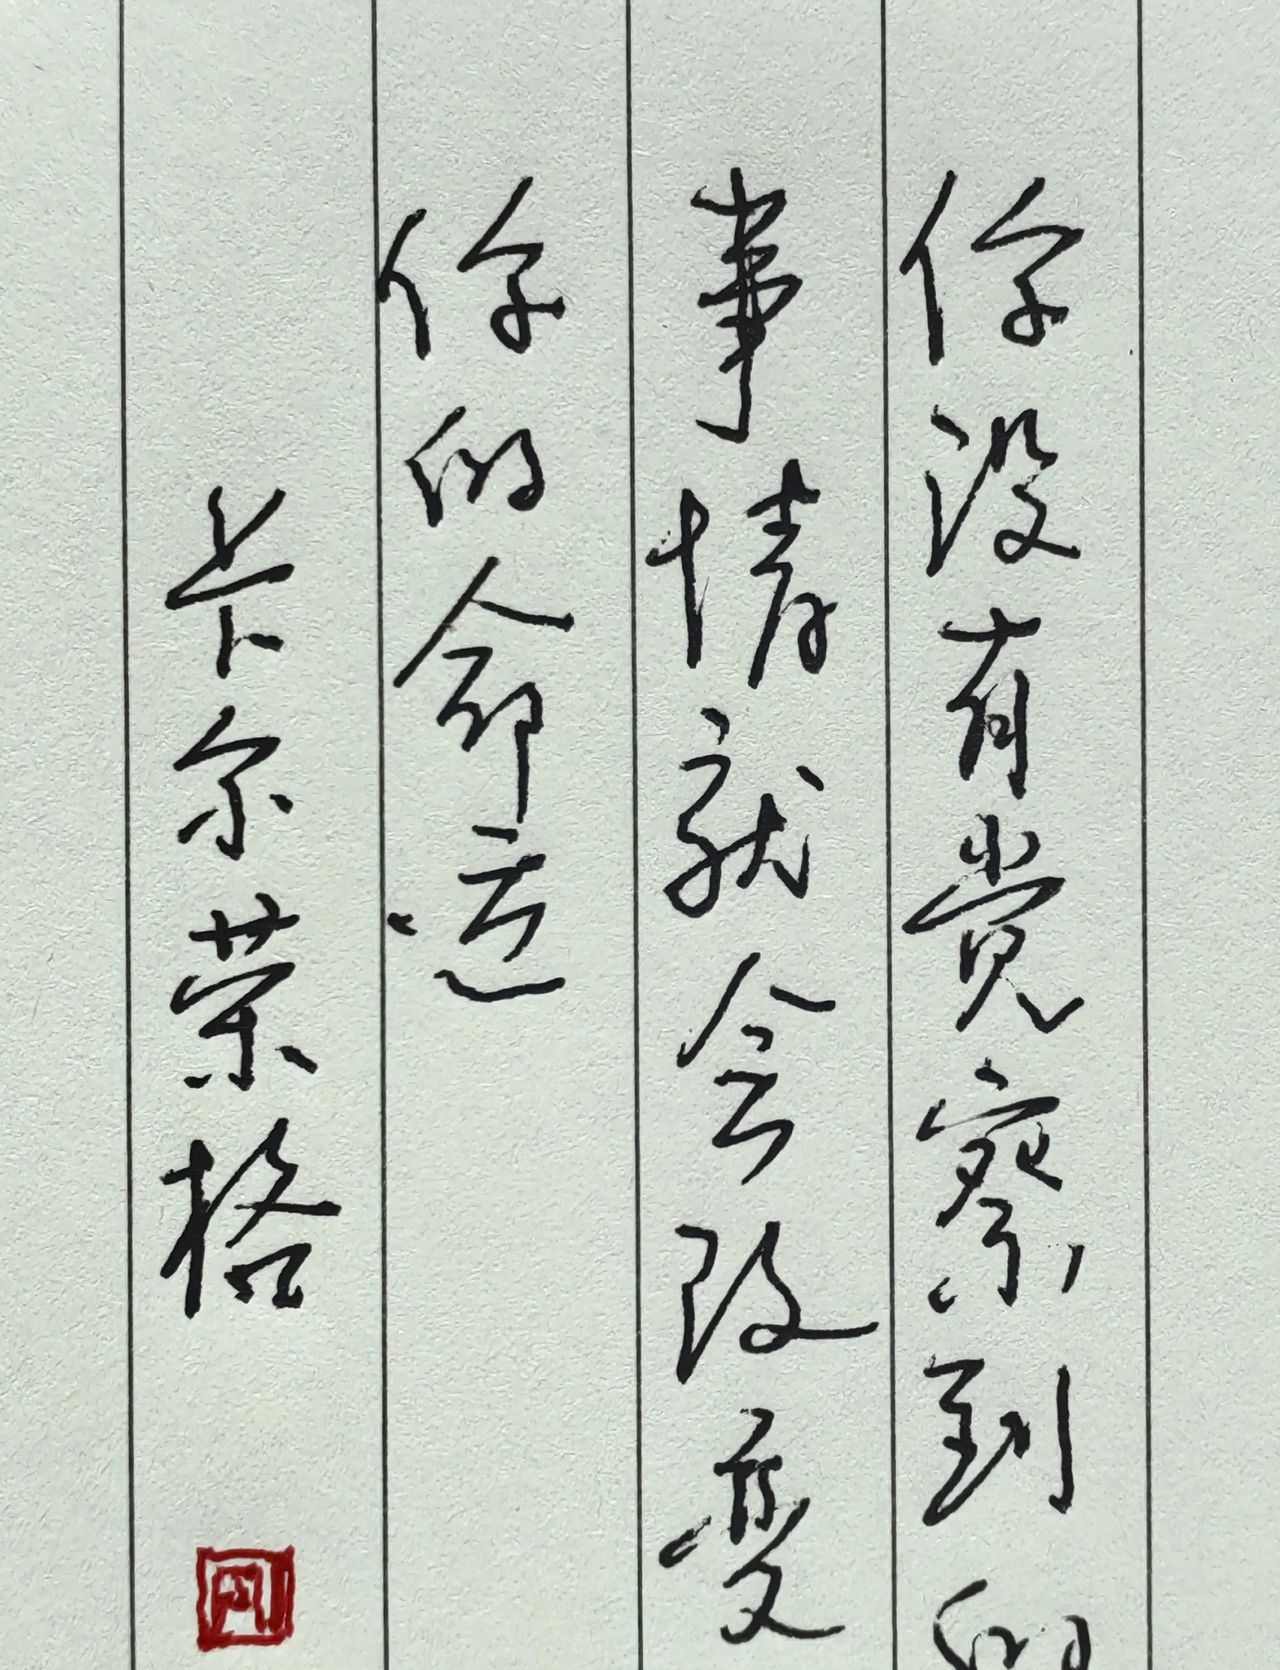 你没有觉察到的
事情就会改变
你的命运
卡尔荣格